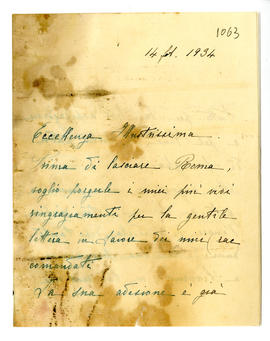 1063
14 fbr. 1934
Eccellenza Illustrissima.
Prima di lasciare Roma,
voglio porgerle i miei più vivi
ringraziamenti per la gentile
lettera in favore dei miei rac
comandati
La sua adesione è già